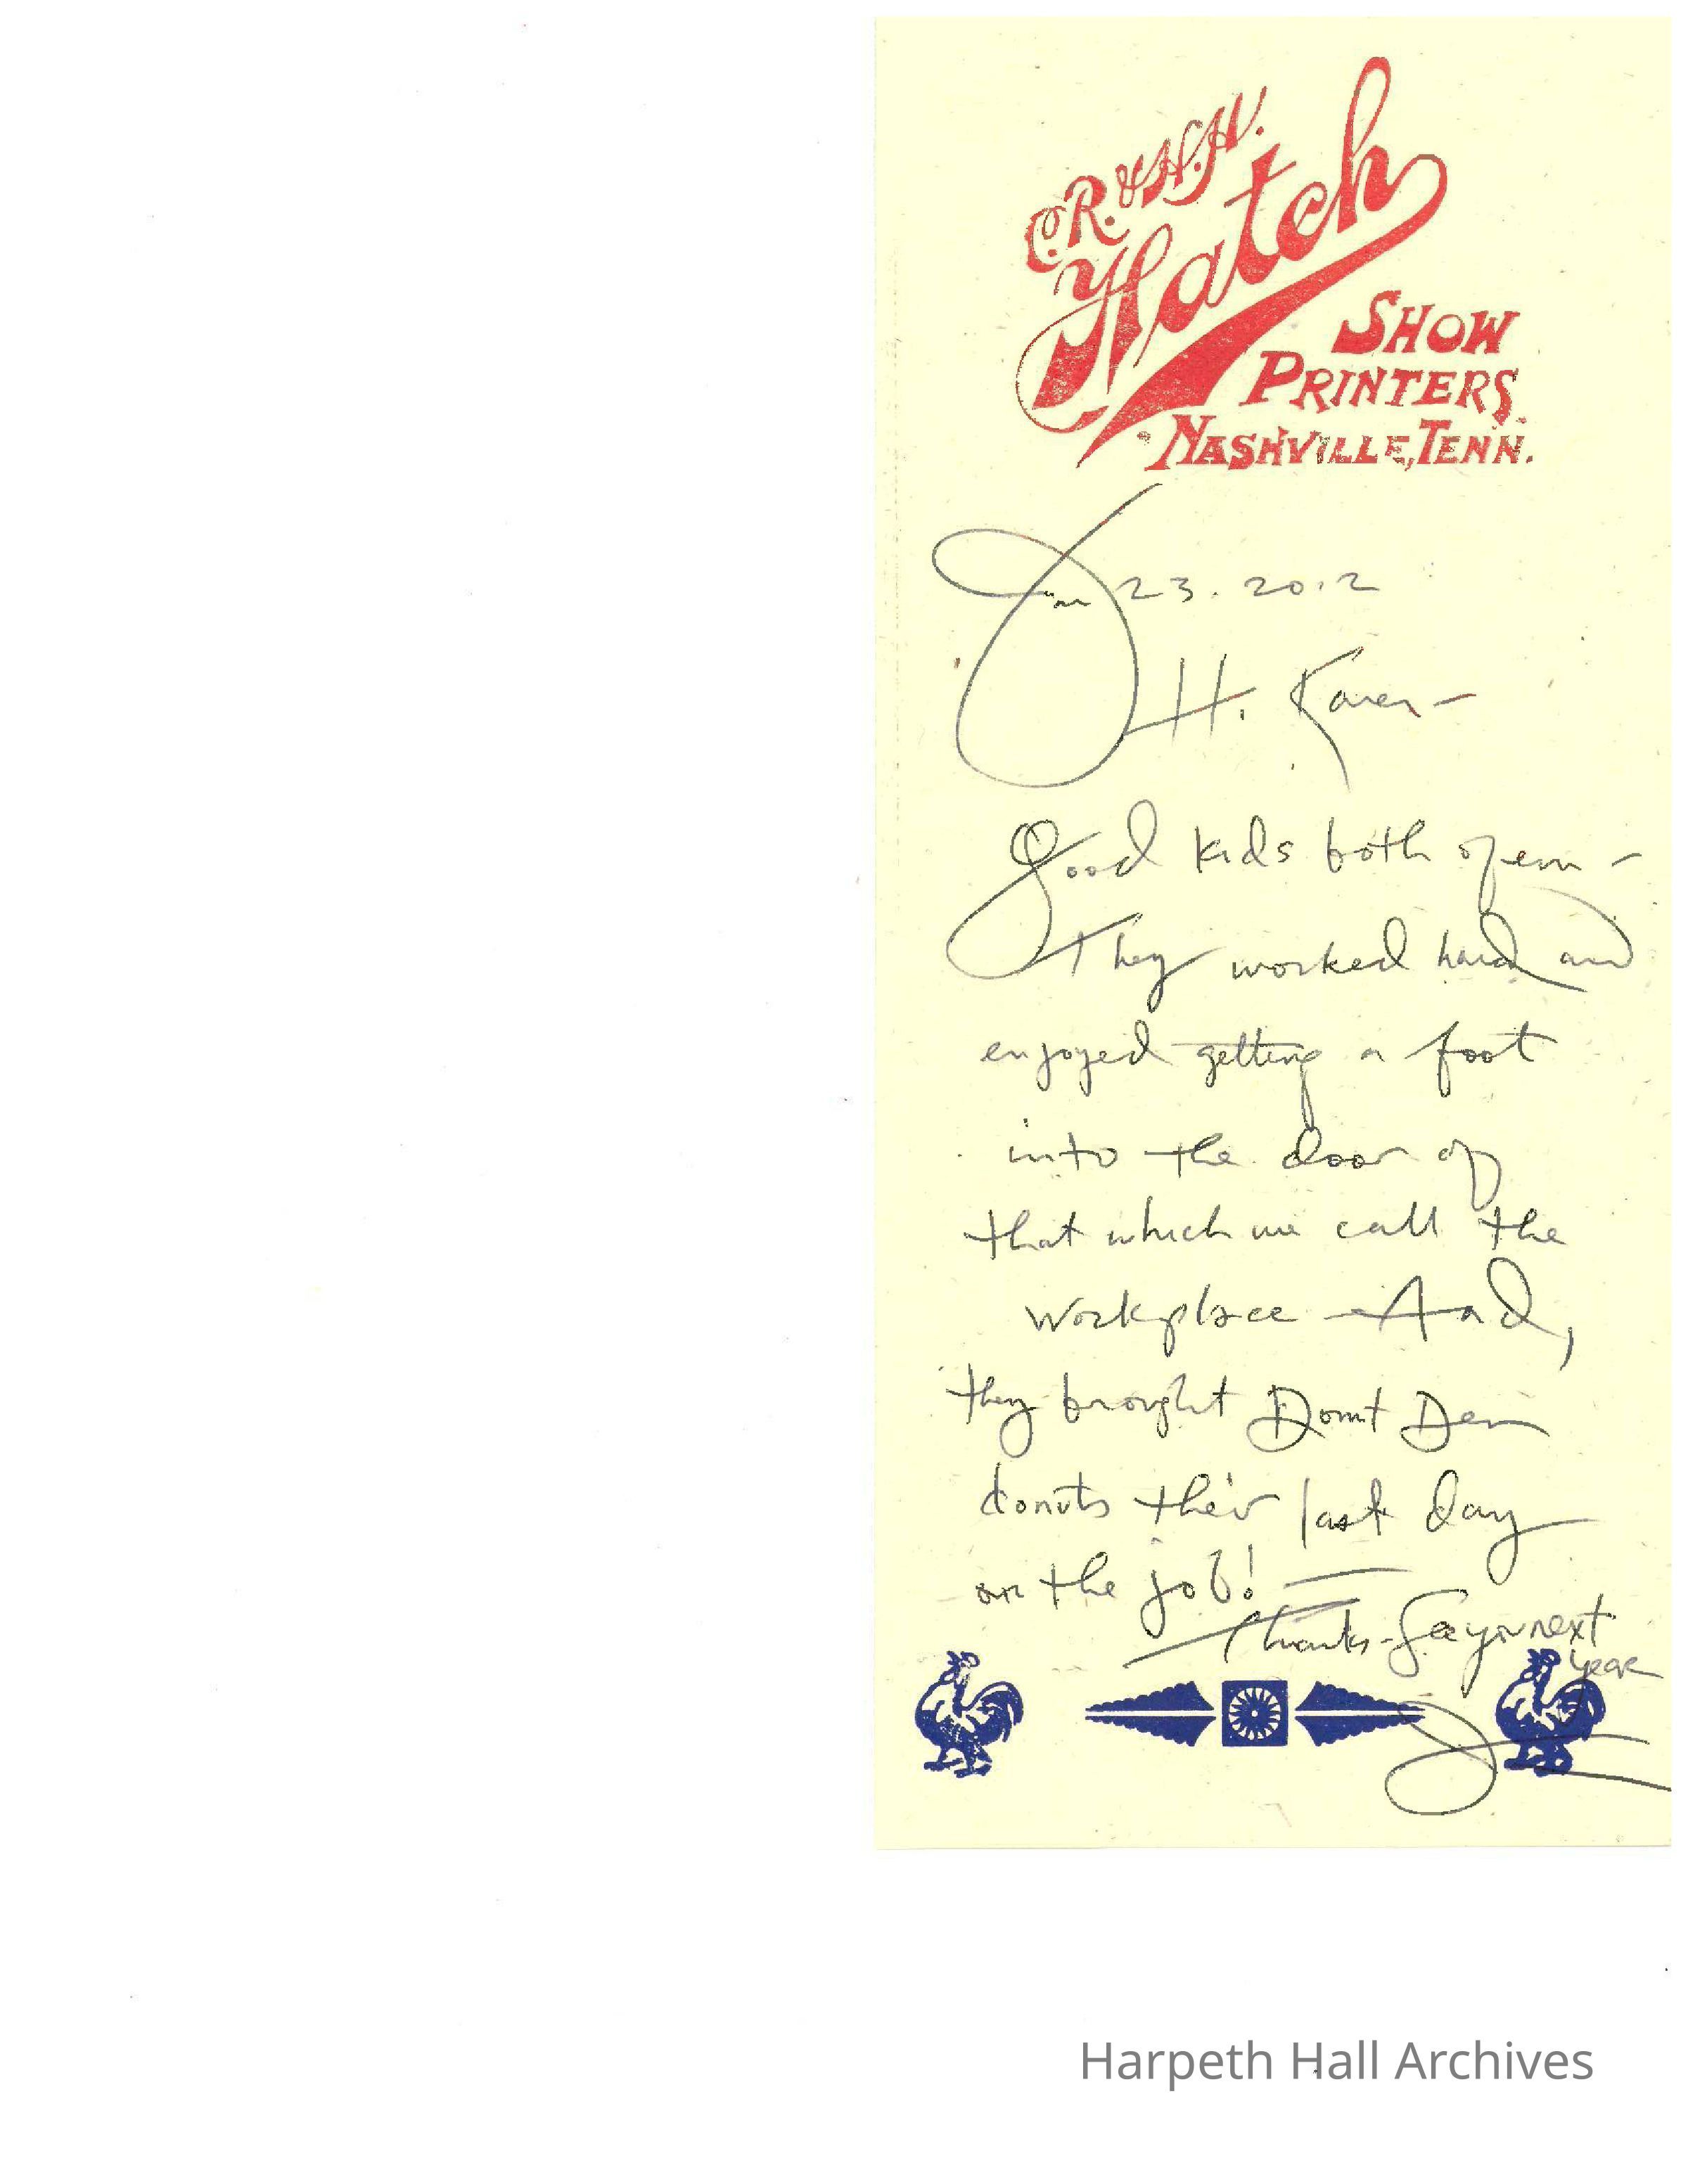 C.R. & H.H.
Hatch
SHOW
PRINTERS.
NASHVILLE, TENN.
Jan 23. 2012
Hi Karen-
Good kids both of em -
They worked hard and
enjoyed getting a foot
into the door of
that which we call the
workplace - And,
they brought Donut Den
donuts their last day
on the job! -
Thanks - See you next
year
Harpeth Hall Archives